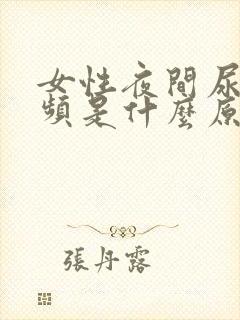 女性夜間尿
頻是什麼原
張丹露